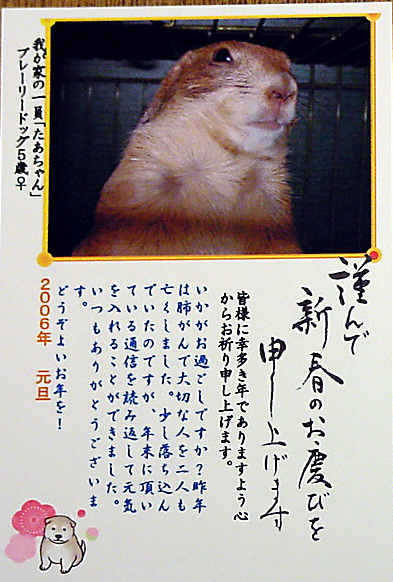 我が家の一員「たあちゃん」
プレーリードッグ5歳♀
謹んで
新春のお慶びを
申し上げます
皆様に幸多き年でありますよう心
からお祈り申し上げます。
いかがお過ごしですか？昨年
は肺がんで大切な人を二人も
亡くしました。少し落ち込ん
でいたのですが、年末に頂い
ている通信を読み返して元気
を入れることができました。
いつもありがとうございま
す。
どうぞよいお年を！
2006年 元旦